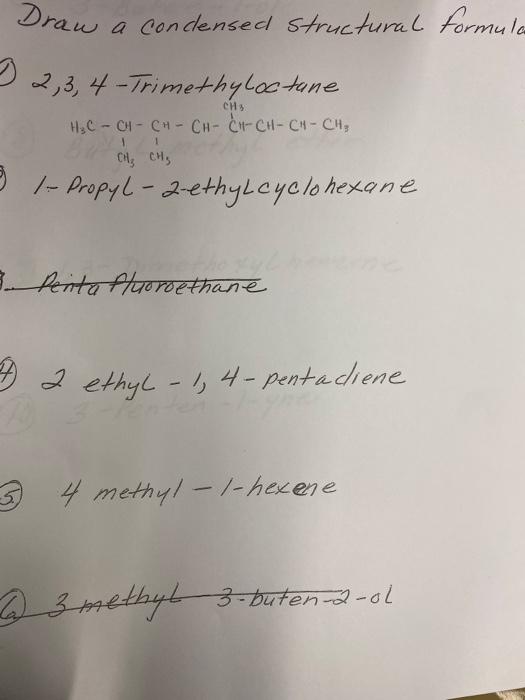 Draw a condensed structural formula
1) 2,3,4-Trimethyloctane
CH3
H3C - CH - CH - CH - CH - CH - CH - CH3
CH3 CH3
1- Propyl - 2-ethylcyclohexane
3. Penta fluoroethane
4) 2 ethyl - 1, 4 - pentadiene
5 4 methyl - 1-hexene
6 3 methyl 3-buten-2-ol